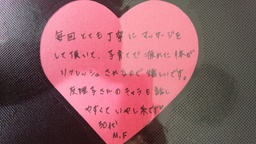 毎回とても丁寧にマッサージを
して頂いて、子育てで疲れた体が
リフレッシュされるので嬉しいです。
友理子さんのキャラも話し
やすくていやし系です!!
30代
M.F